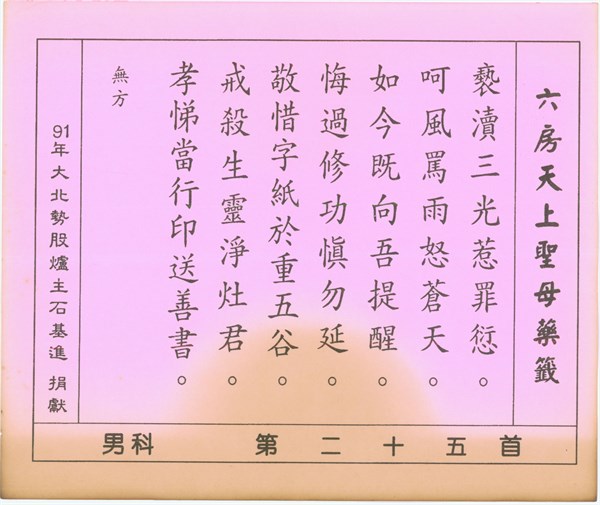 六房天上聖母藥籤
褻瀆三光惹罪愆。
呵風罵雨怒蒼天。
如今既向吾提醒。
悔過修功慎勿延。
敬惜字紙於重五谷。
戒殺生靈淨灶君。
孝悌當行印送善書。
無方
91年大北勢股爐主石基進 捐獻
男科 第二十五首